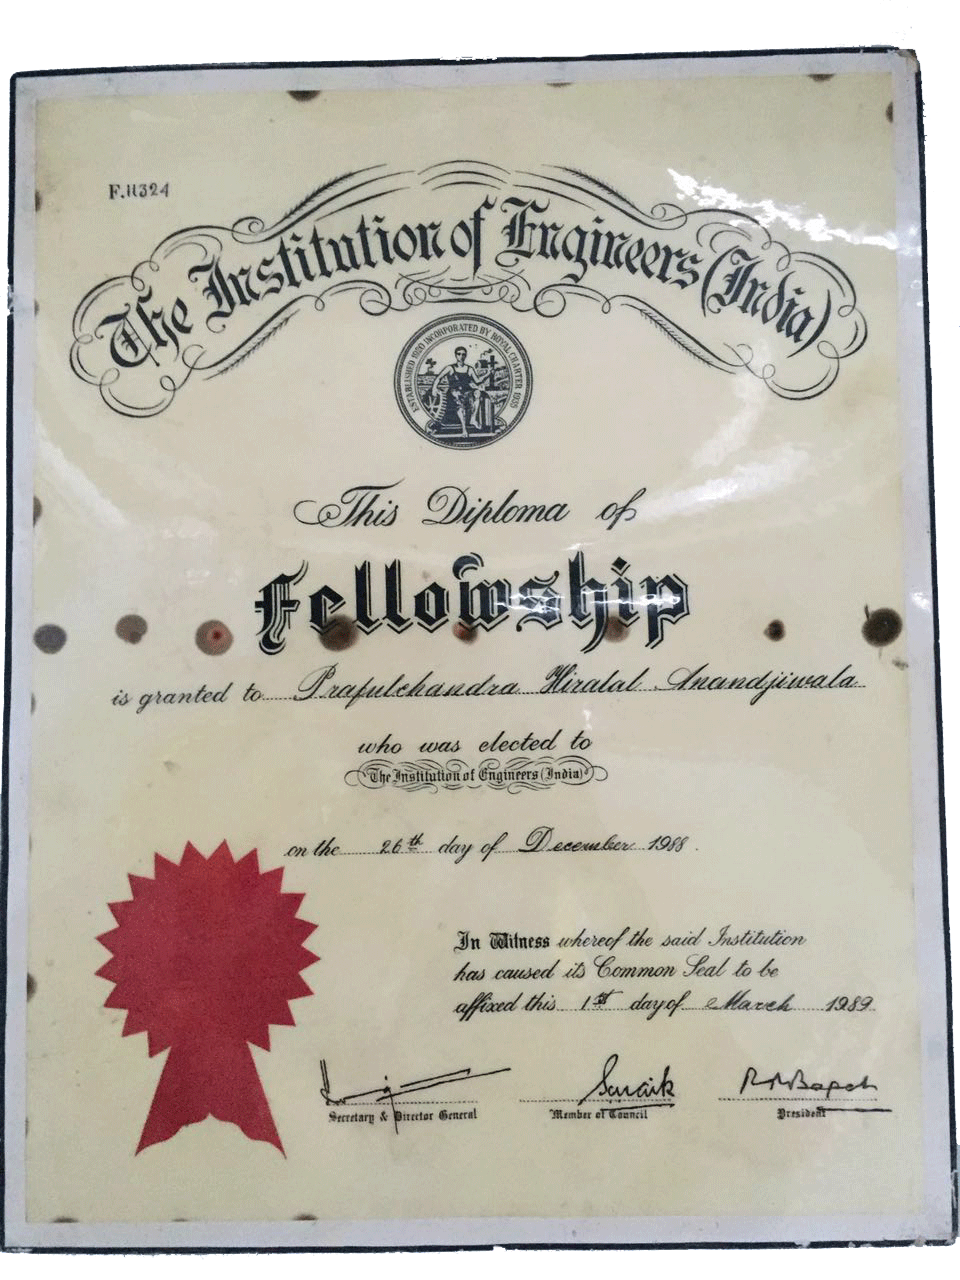 F.11324
The Institution of Engineers (India)
ESTABLISHED 1920 INCORPORATED BY ROYAL CHARTER 1935
This Diploma of
Fellowship
is granted to Prafulchandra Hiralal Anandjiwala
who was elected to
The Institution of Engineers (India)
on the 26th day of December 1988.
In Witness whereof the said Institution
has caused its Common Seal to be
affixed this 1st day of March 1989
Secretary & Director General
Member of Council
President